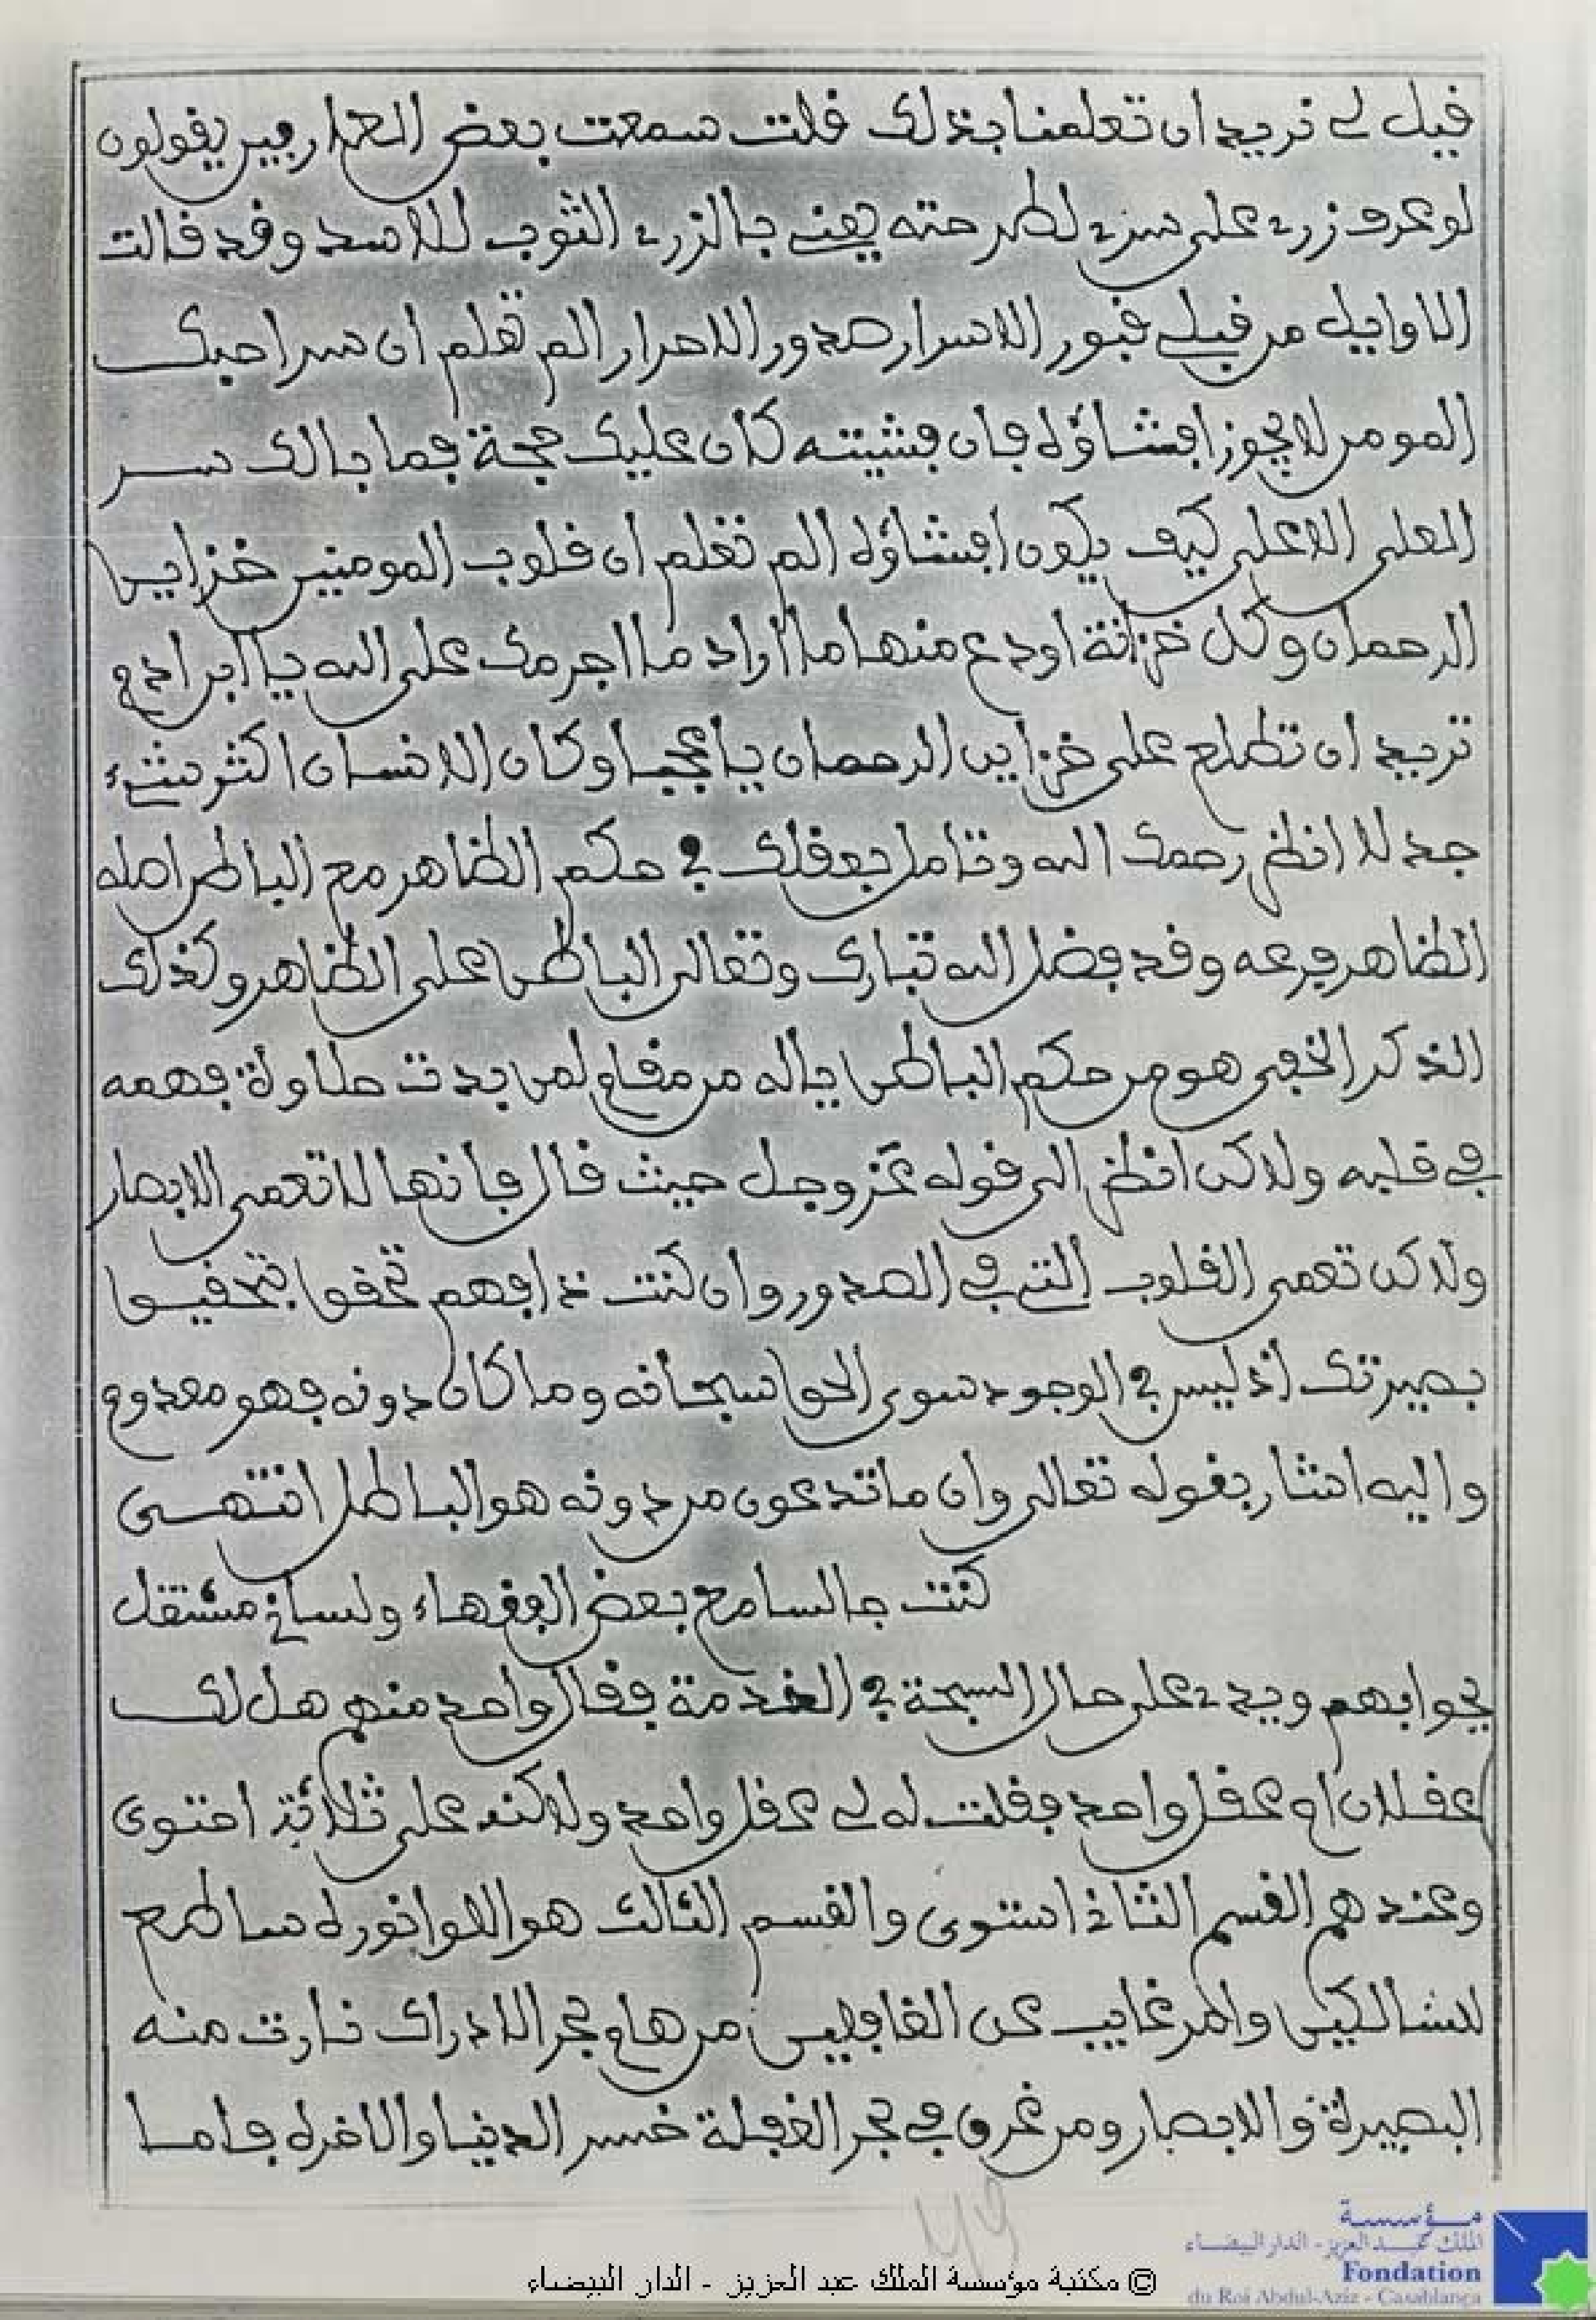 قيل لي تريد ان تعلمنا بذلك قلت سمعت بعض العارفين يقولون
لو عرف زري على سري لطرحته يعني بالزري الثوب للاسد وقد قالت
الاوايل من قبل قبور الاسرار صدور الاحرار الم تعلم ان سر اخيك
المومن لا يجوز افشاؤه فان فشيته كان عليك حجة فما بالك سر
العلي الاعلى كيف يكون افشاؤه الم تعلم ان قلوب المومنين خزاين
الرحمان وكل خزانة اودع منها ما اراد ما اجرمك على الله يا ابن ادم
تريد ان تطلع على خزاين الرحمان يا عجبا وكان الانسان اكثر شيء
جدلا انظر رحمك الله وتامل بعقلك في حكم الظاهر مع الباطن اصله
الظاهر فرعه وقد فضل الله تبارك وتعالى الباطن على الظاهر وكذلك
الذكر الخفي هو من حكم الباطن ياله من مقام لمن بدت حلاوة فهمه
في قلبه ولاكن انظر الى قوله عز وجل حيث قال فانها لا تعمى الابصار
ولاكن تعمى القلوب التي في الصدور وان كنت ذا فهم تحقق بتحقيق
بصيرتك اذ ليس في الوجود سوى الحق سبحانه وما كان دونه فهو معدوم
واليه اشار بقوله تعالى وان ما تدعون من دونه هو الباطل انتهى
كنت جالسا مع بعض الفقهاء ولساني مشتغل
بجوابهم ويدي على حال السبحة في الخدمة فقال واحد منهم هل لك
عقلان ام عقل واحد فقلت له لي عقل واحد ولاكنه على ثلاثة احتوى
وعندهم القسم الثاني استوى والقسم الثالث هو اللوا نوره ساطع
للسالكين وامر غايب عن الغافلين من هام بحر الادراك نارت منه
البصيرة والابصار ومن غرق في بحر الغفلة خسر الدنيا والاخرة فاما
49
© مكتبة مؤسسة الملك عبد العزيز - الدار البيضاء
مؤسسة
الملك عبد العزيز - الدار البيضاء
Fondation
du Roi Abdul-Aziz - Casablanca